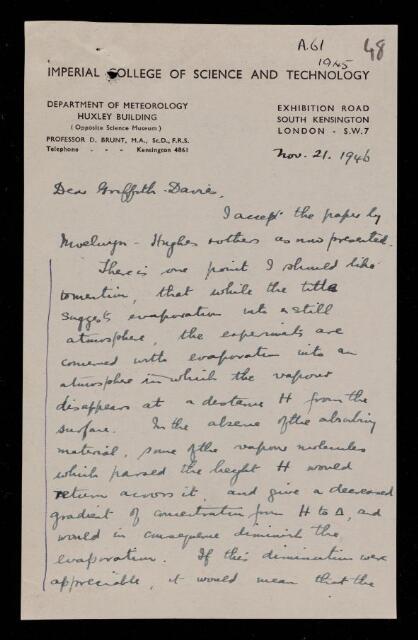 A.61
1945
48
IMPERIAL COLLEGE OF SCIENCE AND TECHNOLOGY
DEPARTMENT OF METEOROLOGY
HUXLEY BUILDING
(Opposite Science Museum)
PROFESSOR D. BRUNT, M.A., Sc.D., F.R.S.
Telephone - - - Kensington 4861
EXHIBITION ROAD
SOUTH KENSINGTON
LONDON - S.W.7
Nov. 21. 1946
Dear Griffith-Davies,
I accept the paper by
Moelwyn-Hughes & others as now presented.
There is one point I should like
to mention, that while the title
suggests evaporation into a still
atmosphere, the experiments are
concerned with evaporation into an
atmosphere in which the vapour
disappears at a distance H from the
surface. In the absence of the absorbing
material, some of the vapour molecules
which passed the height H would
return across it, and give a decreased
gradient of concentration from H to Δ, and
would in consequence diminish the
evaporation. If this diminution were
appreciable, it would mean that the